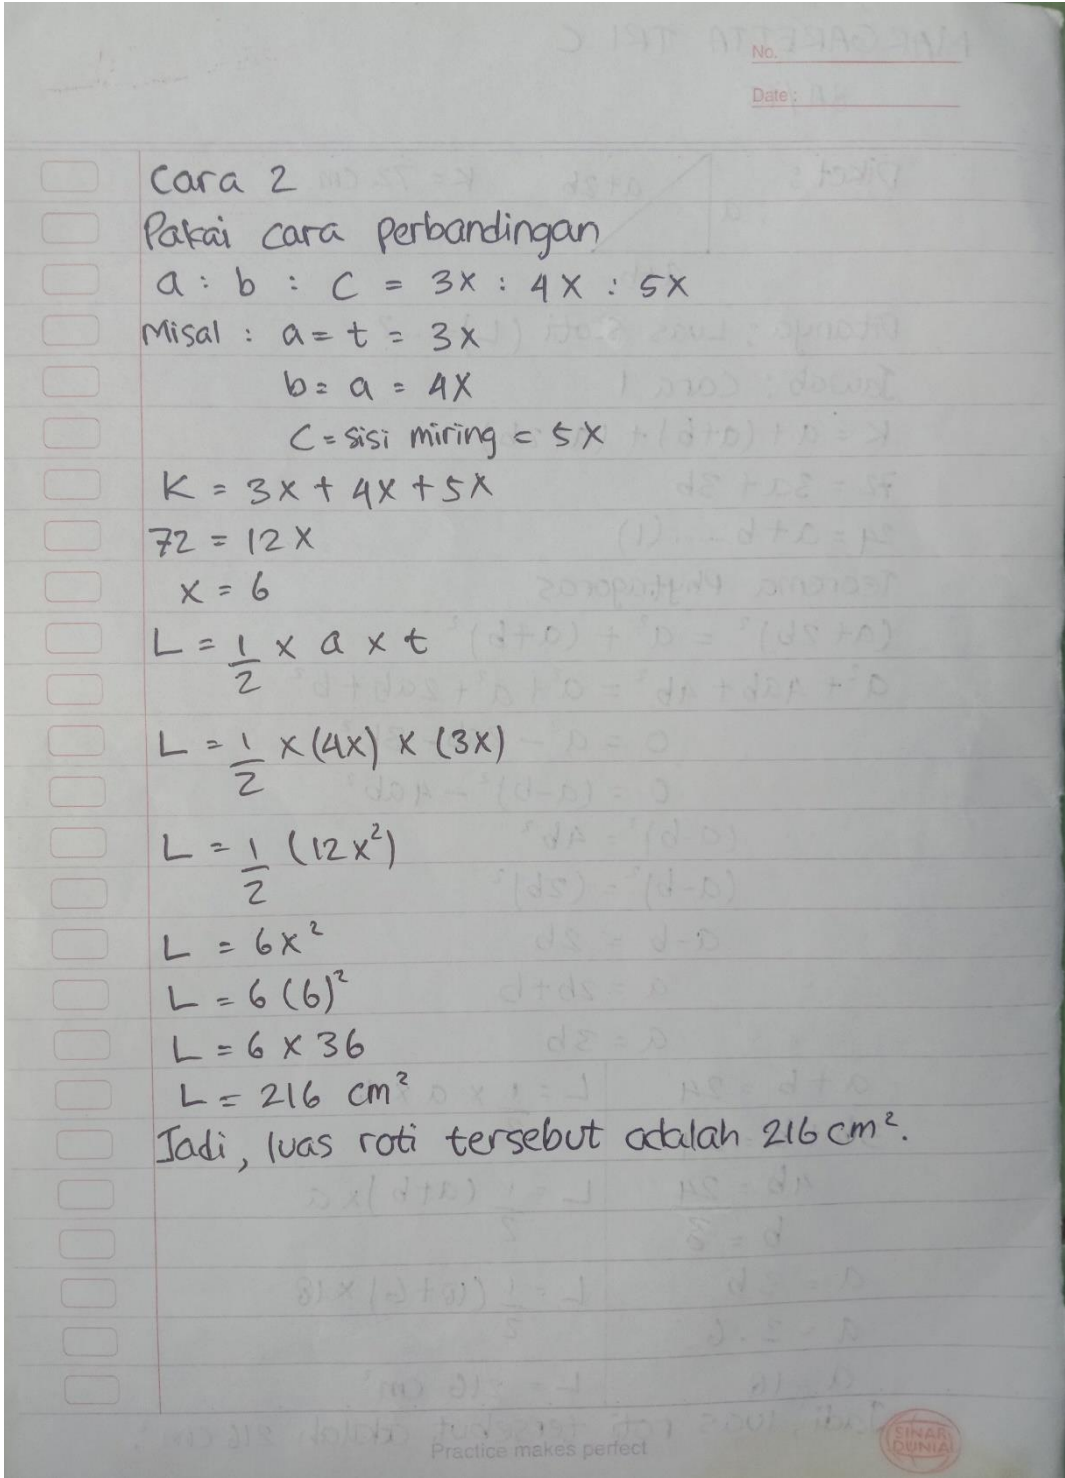 No.
Date :
Cara 2
Pakai cara perbandingan
a : b : c = 3x : 4x : 5x
Misal : a = t = 3x
b = a = 4x
C = sisi miring = 5x
K = 3x + 4x + 5x
72 = 12x
x = 6
L = 1/2 x a x t
L = 1/2 x (4x) x (3x)
L = 1/2 (12x²)
L = 6x²
L = 6 (6)²
L = 6 x 36
L = 216 cm²
Jadi, luas roti tersebut adalah 216 cm².
Practice makes perfect
SINAR
DUNIA